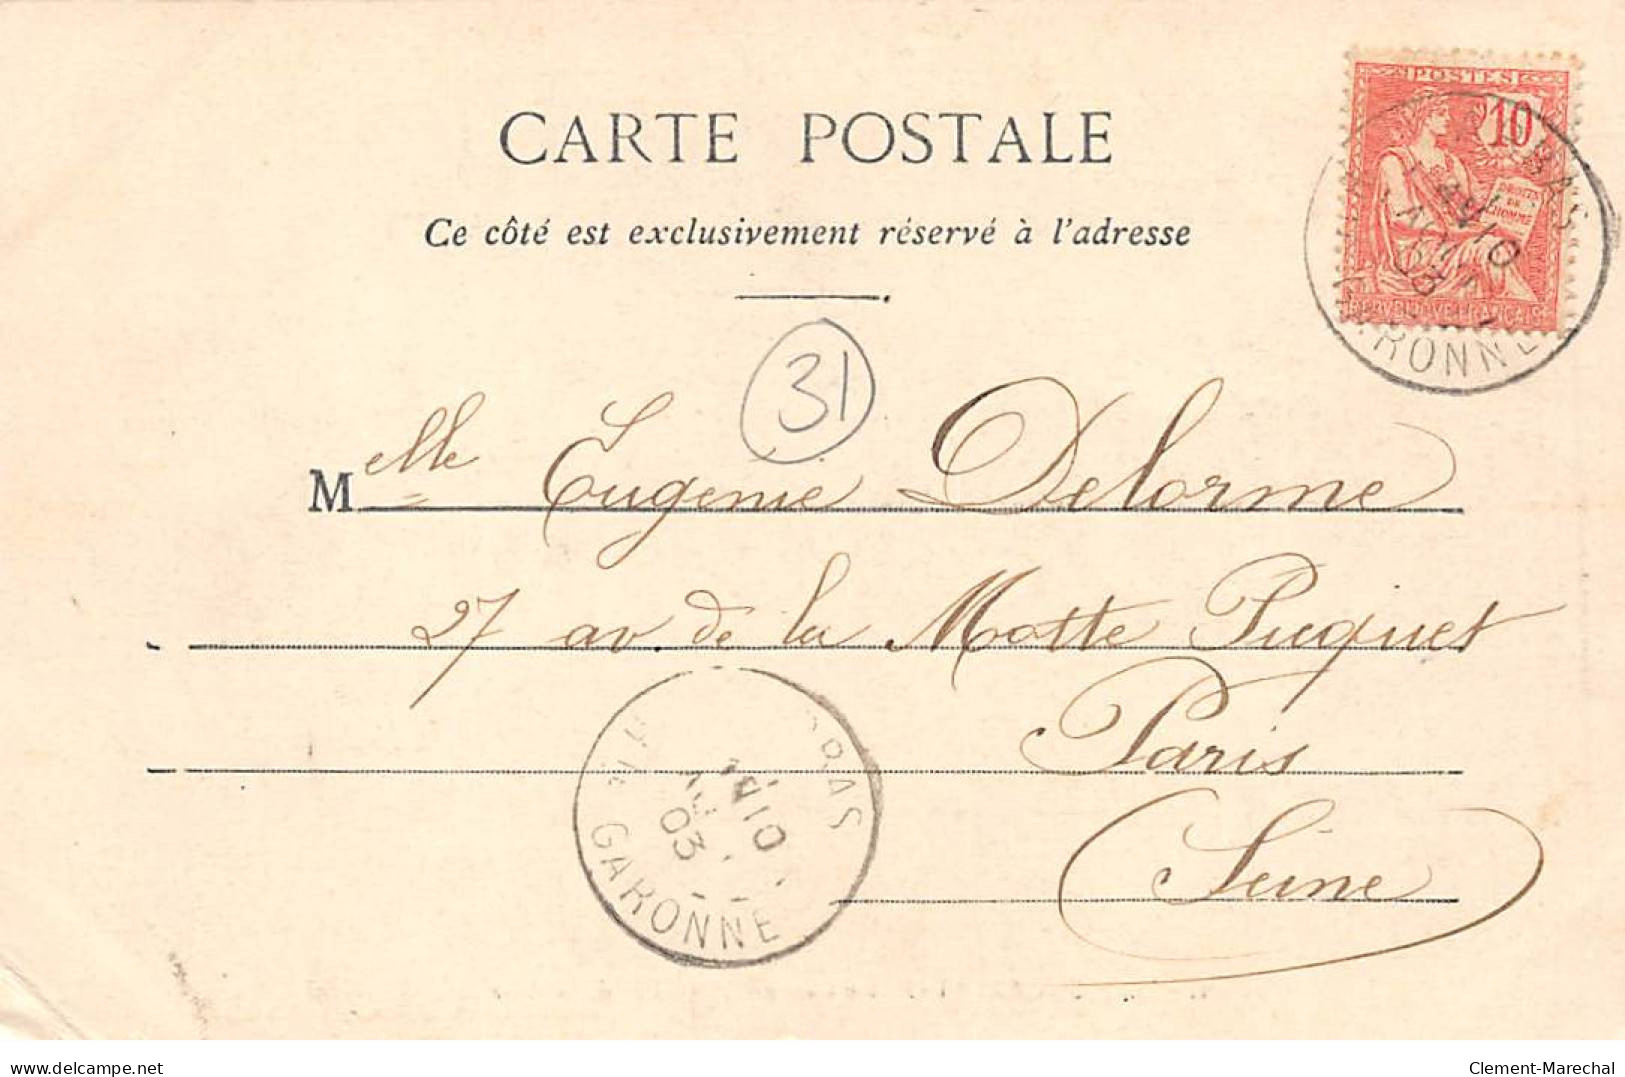 CARTE POSTALE
Ce côté est exclusivement réservé à l'adresse
POSTES
10
DROITS
DE
L'HOMME
GARONNE
31
Melle Eugenie Delorme
27 av. de la Motte Picquet
Paris
Seine
10
03
GARONNE
www.delcampe.net
Clement-Marechal